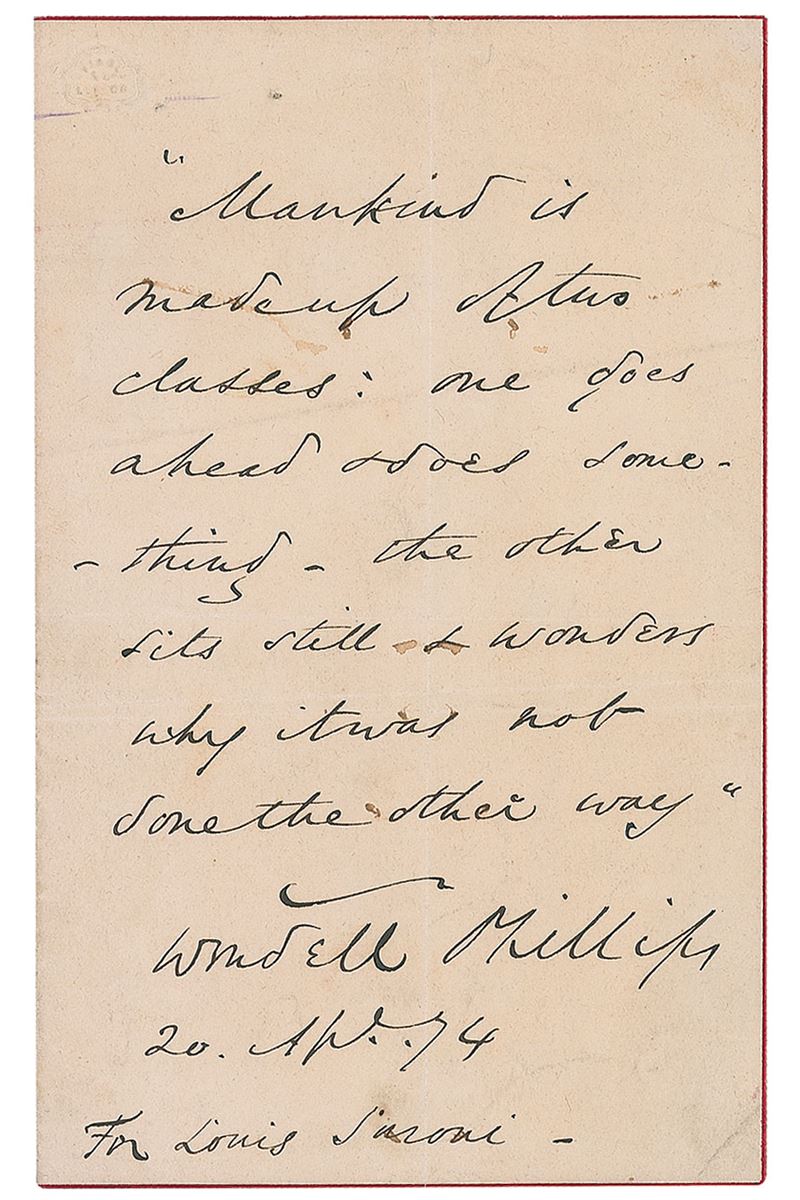 "Mankind is
made up of two
classes: one goes
ahead & does some-
- thing - the other
sits still & wonders
why it was not
done the other way"
Wendell Phillips
20. Apl. '74
For Louis